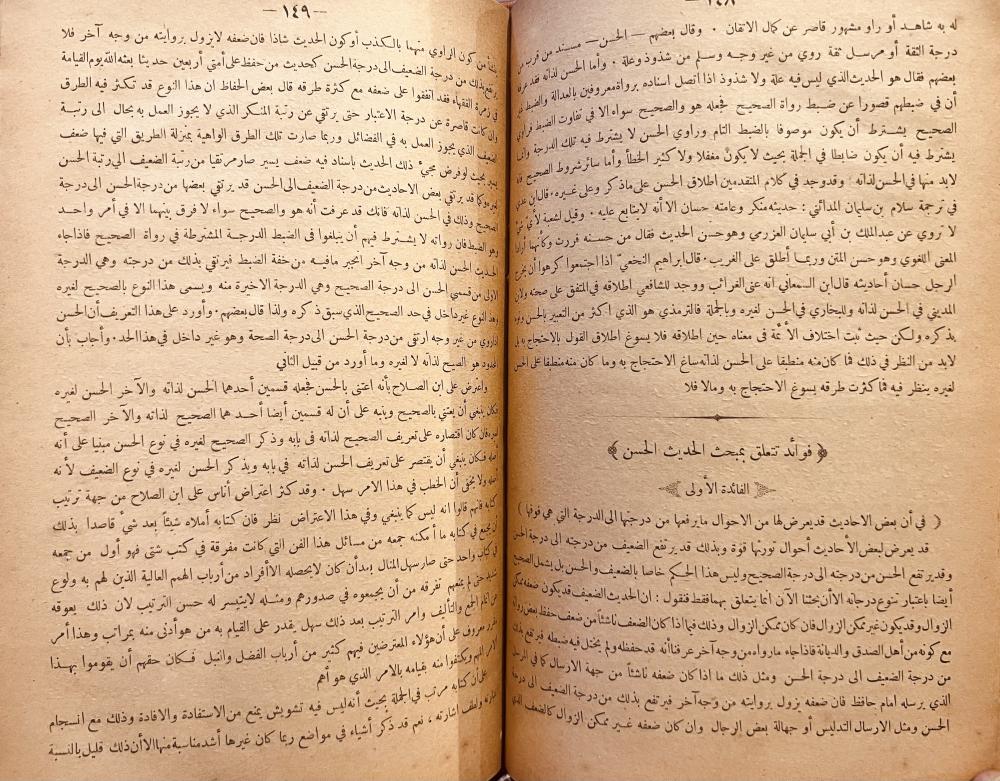 ١٤٨
له به شاهد أو راو مشهور قاصر عن كمال الاتقان . وقال بعضهم — الحسن — مسند من قرب من
درجة الثقة أو مرسل ثقة روي من غير وجه وسلم من شذوذ وعلة . وأما الحسن لذاته فقد عرفه
بعضهم فقال هو الحديث الذي ليس فيه علة ولا شذوذ اذا اتصل اسناده برواة معروفين بالعدالة والضبط غير
أن في ضبطهم قصورا عن ضبط رواة الصحيح فجعله هو والصحيح سواء الا في تفاوت الضبط فراوي
الصحيح يشترط أن يكون موصوفا بالضبط التام وراوي الحسن لا يشترط فيه تلك الدرجة وانما
يشترط فيه أن يكون ضابطا في الجملة بحيث لا يكون مغفلا ولا كثير الخطأ وأما سائر شروط الصحيح فانه
لابد منها في الحسن لذاته وقد وجد في كلام المتقدمين اطلاق الحسن على ماذكر وعلى غيره . قال ابن عدي
في ترجمة سلام بن سليمان المدائني : حديثه منكر وعامته حسان الا أنه لا يتابع عليه . وقيل لشعبة لأي شيء
لا تروي عن عبد الملك بن أبي سليمان العزرمي وهو حسن الحديث فقال من حسنه فررت وكأنهما أرادا
المعنى اللغوي وهو حسن المتن وربما أطلق على الغريب . قال ابراهيم النخعي اذا اجتمعوا كرهوا أن يخرج
الرجل حسان أحاديثه قال ابن السمعاني انه عنى الغرائب ووجد للشافعي اطلاقه في المتفق على صحته ولابن
المديني في الحسن لذاته وللبخاري في الحسن لغيره وبالجملة فالترمذي هو الذي اكثر من التعبير بالحسن ونوه
بذكره ولكن حيث ثبت اختلاف الأئمة في معناه حين اطلاقه فلا يسوغ اطلاق القول بالاحتجاج به بل
لابد من النظر في ذلك فما كان منه منطبقا على الحسن لذاته ساغ الاحتجاج به وما كان منه منطبقا على الحسن
لغيره ينظر فيه فما كثرت طرقه يسوغ الاحتجاج به ومالا فلا
﴿ فوائد تتعلق بمبحث الحديث الحسن ﴾
الفائدة الأولى
( في أن بعض الاحاديث قد يعرض لها من الاحوال مايرفعها من درجتها الى الدرجة التي هي فوقها )
قد يعرض لبعض الأحاديث أحوال تورثها قوة وبذلك قد يرتفع الضعيف من درجته الى درجة الحسن
وقد يرتفع الحسن من درجته الى درجة الصحيح وليس هذا الحكم خاصا بالضعيف والحسن بل يشمل الصحيح
أيضا باعتبار تنوع درجاته الا أن بحثنا الآن انما يتعلق بهما فقط فنقول : ان الحديث الضعيف قد يكون ضعفه ممكن
الزوال وقد يكون غير ممكن الزوال فان كان ممكن الزوال وذلك فيما اذا كان الضعف ناشئا من ضعف حفظ بعض رواته
مع كونه من أهل الصدق والديانة فاذا جاء مارواه من وجه آخر عرفنا أنه قد حفظه ولم يختل فيه ضبطه فيرتفع بذلك
من درجة الضعيف الى درجة الحسن ومثل ذلك ما اذا كان ضعفه ناشئا من جهة الارسال كما في المرسل
الذي يرسله امام حافظ فان ضعفه يزول بروايته من وجه آخر فيرتفع بذلك من درجة الضعيف الى درجة
الحسن ومثل الارسال التدليس أو جهالة بعض الرجال وان كان ضعفه غير ممكن الزوال كالضعف الذي
— ١٤٩ —
من كون الراوي متهما بالكذب أو كون الحديث شاذا فان ضعفه لا يزول بروايته من وجه آخر فلا
يرتفع بذلك من درجة الضعيف الى درجة الحسن كحديث من حفظ على أمتي أربعين حديثا بعثه الله يوم القيامة
في زمرة الفقهاء فقد اتفقوا على ضعفه مع كثرة طرقه قال بعض الحفاظ ان هذا النوع قد تكثر فيه الطرق
وان كانت قاصرة عن درجة الاعتبار حتى يرتقي عن رتبة المنكر الذي لا يجوز العمل به بحال الى رتبة
الضعيف الذي يجوز العمل به في الفضائل وربما صارت تلك الطرق الواهية بمنزلة الطريق التي فيها ضعف
يسير بحيث لو فرض مجيء ذلك الحديث باسناد فيه ضعف يسير صار مرتقيا من رتبة الضعيف الى رتبة الحسن
لغيره وكما قد يرتقي بعض الاحاديث من درجة الضعيف الى الحسن قد يرتقي بعضها من درجة الحسن الى درجة
الصحيح وذلك في الحسن لذاته فانك قد عرفت أنه هو والصحيح سواء لا فرق بينهما الا في أمر واحد
وهو الضبط فان رواته لا يشترط فيهم أن يبلغوا في الضبط الدرجة المشترطة في رواة الصحيح فاذا جاء
الحديث الحسن لذاته من وجه آخر انجبر مافيه من خفة الضبط فيرتقي بذلك من درجته وهي الدرجة
الاولى من قسمي الحسن الى درجة الصحيح وهي الدرجة الاخيرة منه ويسمى هذا النوع بالصحيح لغيره
وهذا النوع غير داخل في حد الصحيح الذي سبق ذكره ولذا قال بعضهم . وأورد على هذا التعريف أن الحسن
اذا روي من غير وجه ارتقى من درجة الحسن الى درجة الصحة وهو غير داخل في هذا الحد . وأجاب بأن
المحدود هو الصحيح لذاته لا لغيره وما أورد من قبيل الثاني
واعترض على ابن الصلاح بأنه اعتنى بالحسن فجعله قسمين أحدهما الحسن لذاته والآخر الحسن لغيره
فكان ينبغي أن يعتني بالصحيح وينبه على أن له قسمين أيضا أحدهما الصحيح لذاته والآخر الصحيح
لغيره فان كان اقتصاره على تعريف الصحيح لذاته في بابه وذكر الصحيح لغيره في نوع الحسن مبنيا على أنه
أصله فكان ينبغي أن يقتصر على تعريف الحسن لذاته في بابه ويذكر الحسن لغيره في نوع الضعيف لأنه
أصله ولا يخفى أن الخطب في هذا الامر سهل . وقد كثر اعتراض أناس على ابن الصلاح من جهة ترتيب
كتابه فانهم قالوا انه ليس كما ينبغي وفي هذا الاعتراض نظر فان كتابه أملاه شيئا بعد شيء قاصدا بذلك
أن يجمع في كتابه ما أمكنه جمعه من مسائل هذا الفن التي كانت مفرقة في كتب شتى فهو أول من جمعه
في كتاب واحد حتى صار سهل المنال بعد أن كان لا يحصله الا أفراد من أرباب الهمم العالية الذين لهم به ولوع
شديد حتى لم يمنعهم تفرقه من أن يجمعوه في صدورهم ومثله لا يتيسر له حسن الترتيب لان ذلك يعوقه
عن اتمام الجمع والتأليف وأمر الترتيب بعد ذلك سهل يقدر على القيام به من هو أدنى منه بمراتب وهذا أمر
مقرر معروف على أن هؤلاء المعترضين فيهم كثير من أرباب الفضل والنبل فكان حقهم أن يقوموا بهذا
الامر المهم ويكتفوا منه بقيامه بالامر الذي هو أهم
على أن كتابه مرتب في الجملة بحيث أنه ليس فيه تشويش يمنع من الاستفادة والافادة وذلك مع انسجام
عبارته ولطف اشارته ، نعم قد ذكر أشياء في مواضع ربما كان غيرها أشد مناسبة منها الا أن ذلك قليل بالنسبة